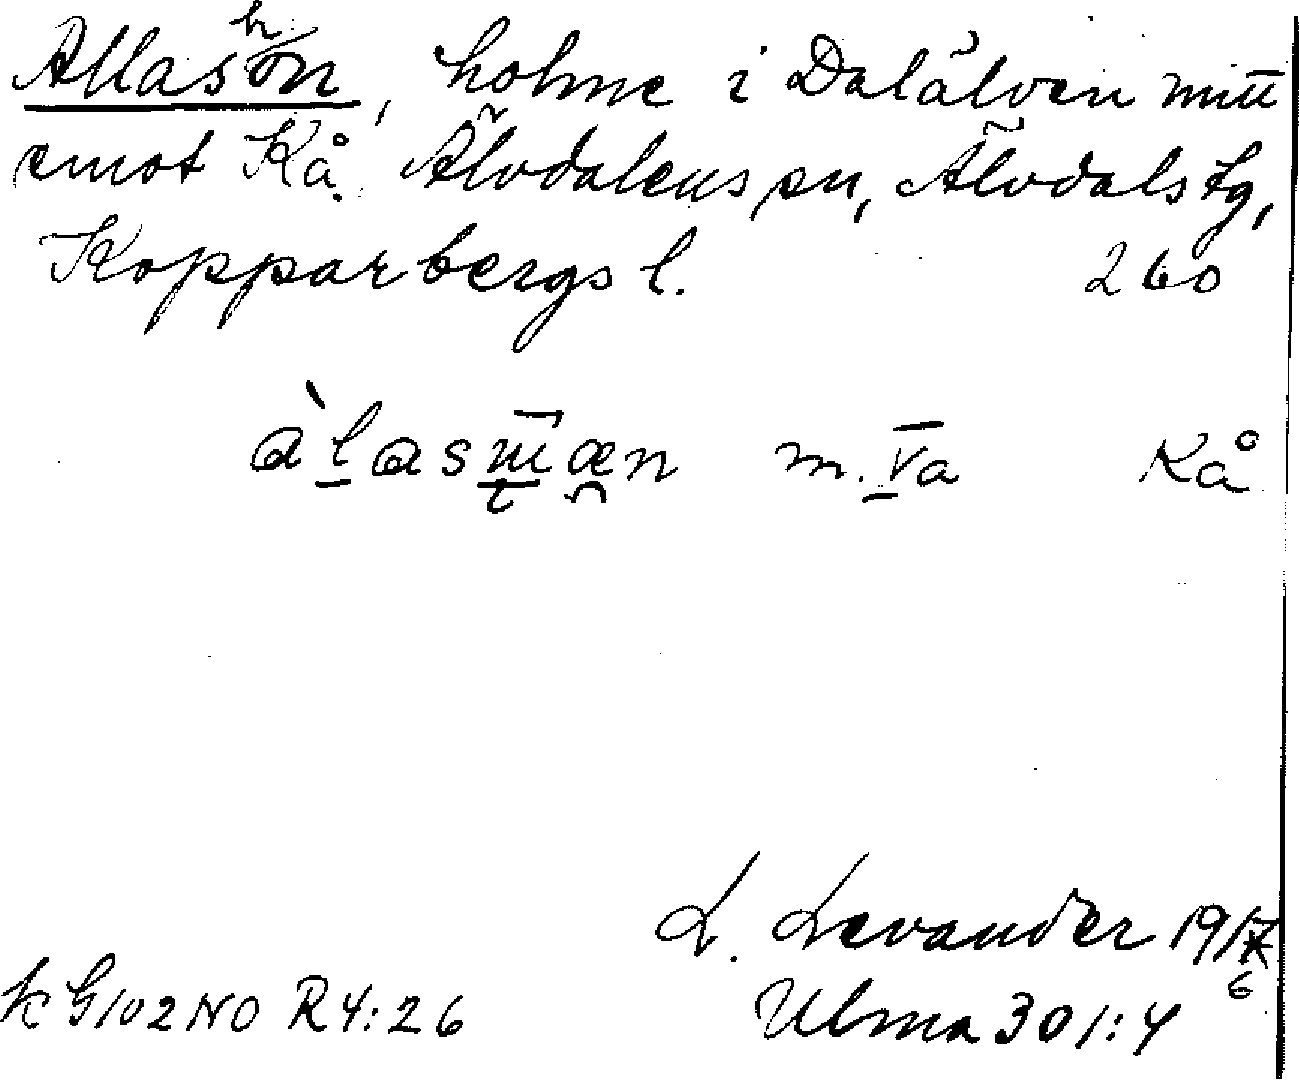 Allasön, holme i Dalälven mitt
emot Kå. Älvdalens sn, Älvdals tg,
Kopparbergs l. 260
m. Va Kå
L. Levander 1916
Ulma 301:4
R4:26